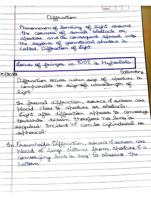 Diffraction
Phenomenon of bending of light around
the corners of small obstacle or
aperture and its consequent spread into
the region of geometrical shadow is
called Diffraction of light.
Locus of fringes in YDSE is Hyperbola
Saturday
Diffraction occurs when size of obstacle is
comparable to size of wavelength of
light.
In fresnel diffraction, source & screen are
placed close to obstacle or aperture.
Light after diffraction appears to converge
towards screen, therefore no lens is
required. Incident can be cylindrical or
spherical
In Fraunhoffer Diffraction, source & screen are
placed at large distance from aperture &
converging lens is kept to observe the
pattern